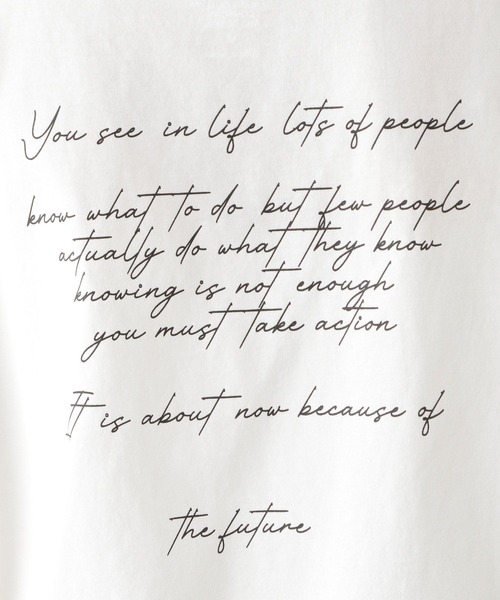 You see in life lots of people
know what to do but few people
actually do what they know
knowing is not enough
you must take action
It is about now because of
the future